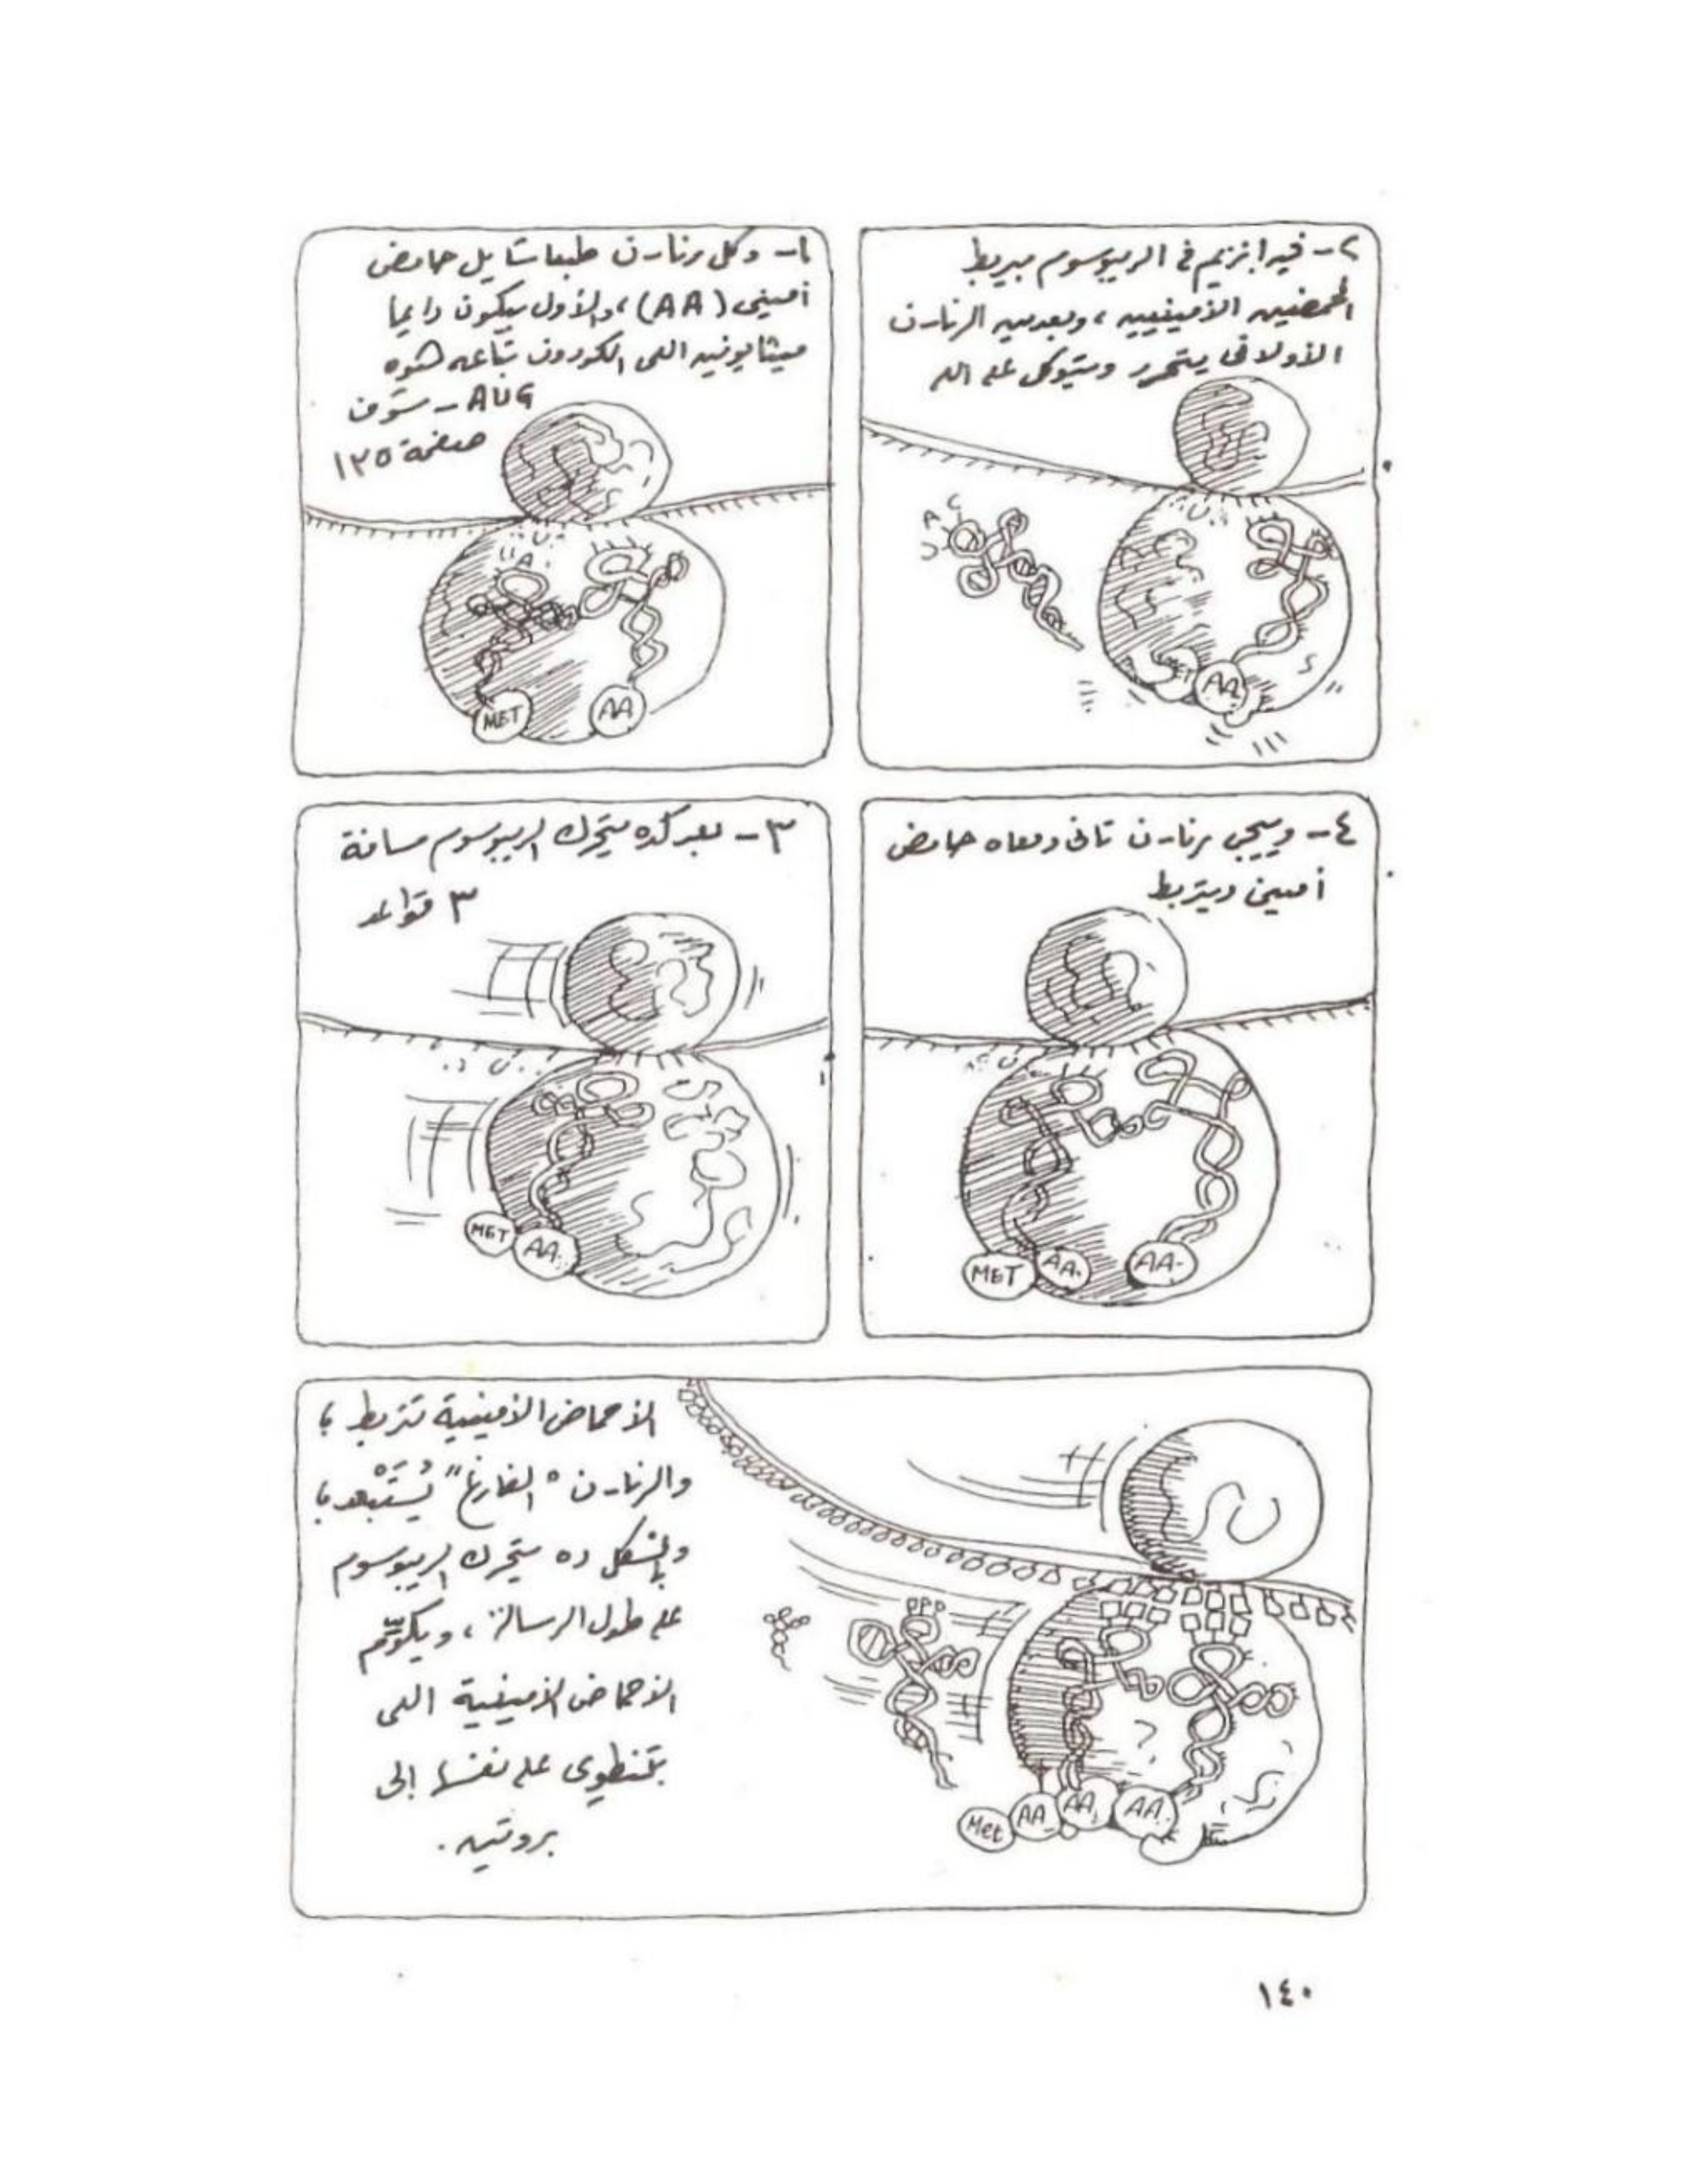 ١- وكل رنا-ن طبعا شايل حامض
أميني (AA)، والأول بيكون دايما
ميثايونين اللي الكودون بتاعه هوه
AUG - شوف
صفحة ١٢٥
A
MET
AA
٢- فيه انزيم في الريبوسوم بيربط
الحمضين الأمينيين، وبعدين الرنا-ن
الأولاني يتحرر ويتوكل على الله
U A C
MET
AA
٣- بعد كده يتحرك الريبوسوم مسافة
٣ قواعد
MET
AA
٤- وييجي رنا-ن تاني ومعاه حامض
أميني ويتربط
MET
AA
AA
الأحماض الأمينية تتربط،
والرنا-ن "الفارغ" يُسْتَبْعد،
وبالشكل ده يتحرك الريبوسوم
على طول الرسالة، ويكوّم
الأحماض الأمينية اللي
بتنطوي على نفسها إلى
بروتين.
Met
AA
AA
AA
١٤٠